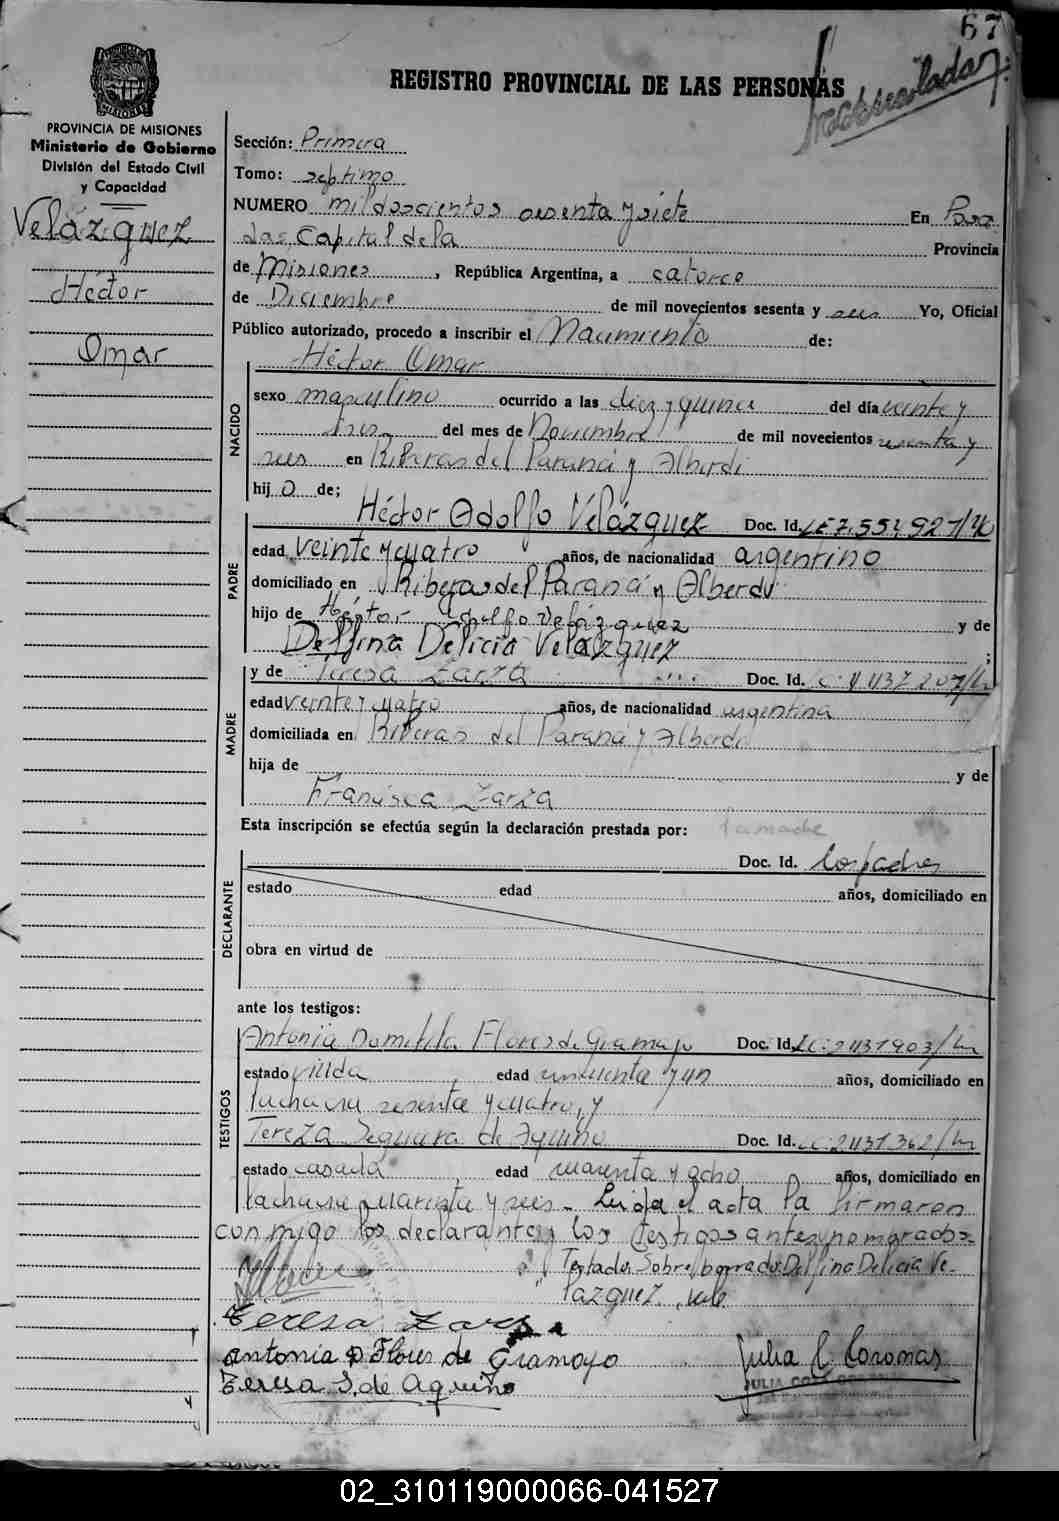 67
Macrocolada
REGISTRO PROVINCIAL DE LAS PERSONAS
PROVINCIA DE MISIONES
Ministerio de Gobierno
División del Estado Civil
y Capacidad
Velázquez
Héctor
Omar
Sección: Primera
Tomo: septimo
NUMERO mil doscientos sesenta y siete En Posa
das, Capital de la Provincia
de Misiones, República Argentina, a catorce
de Diciembre de mil novecientos sesenta y seis Yo, Oficial
Público autorizado, procedo a inscribir el Nacimiento de:
Héctor Omar
NACIDO
sexo masculino ocurrido a las diez y quince del día veinte y
tres del mes de Noviembre de mil novecientos sesenta y
seis en Riberas del Paraná y Alberdi
hijo de;
PADRE
Héctor Adolfo Velázquez Doc. Id. LE 7.551.927/M
edad veinte y cuatro años, de nacionalidad argentino
domiciliado en Riberas del Paraná y Alberdi
hijo de Héctor Adolfo Velázquez y de
Delfina Delicia Velázquez ;
MADRE
y de Teresa Zarza Doc. Id.
edad veinte y cuatro años, de nacionalidad argentina
domiciliada en Riberas del Paraná y Alberdi
hija de y de
Francisca Zarza
Esta inscripción se efectúa según la declaración prestada por: la madre
DECLARANTE
Doc. Id. los padres
estado edad años, domiciliado en
obra en virtud de
ante los testigos:
TESTIGOS
Antonia Domitila Flores de Gramajo Doc. Id. LC: 2431903/M
estado viuda edad cincuenta y un años, domiciliado en
Ayacucho sesenta y cuatro, y
Tereza Seguura de Aquino Doc. Id. LC: 2431362/M
estado casada edad cuarenta y ocho años, domiciliado en
Ayacucho cuarenta y seis - Leida el acta la firmaron
conmigo los declarantes y los testigos antes nomorados-
Testado: Sobre borrado: Delfina Delicia Ve-
lázquez, vale
Teresa Zarza
antonia D Flores de Gramoyo
Teresa S. de Aquino
Julia C. Coronas
02_310119000066-041527